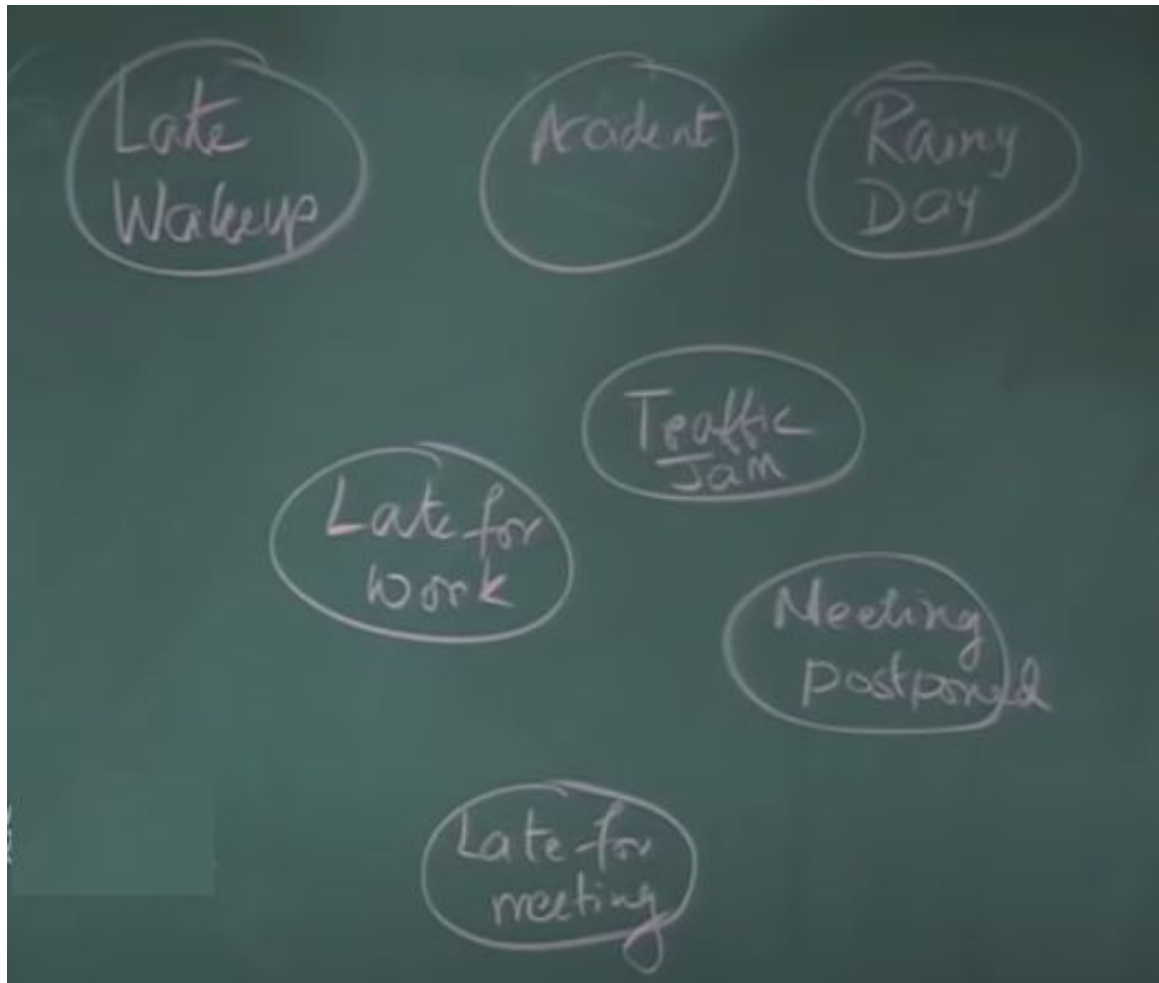 Late
Wakeup
Accident
Rainy
Day
Traffic
Jam
Late for
work
Meeting
postponed
Late for
meeting